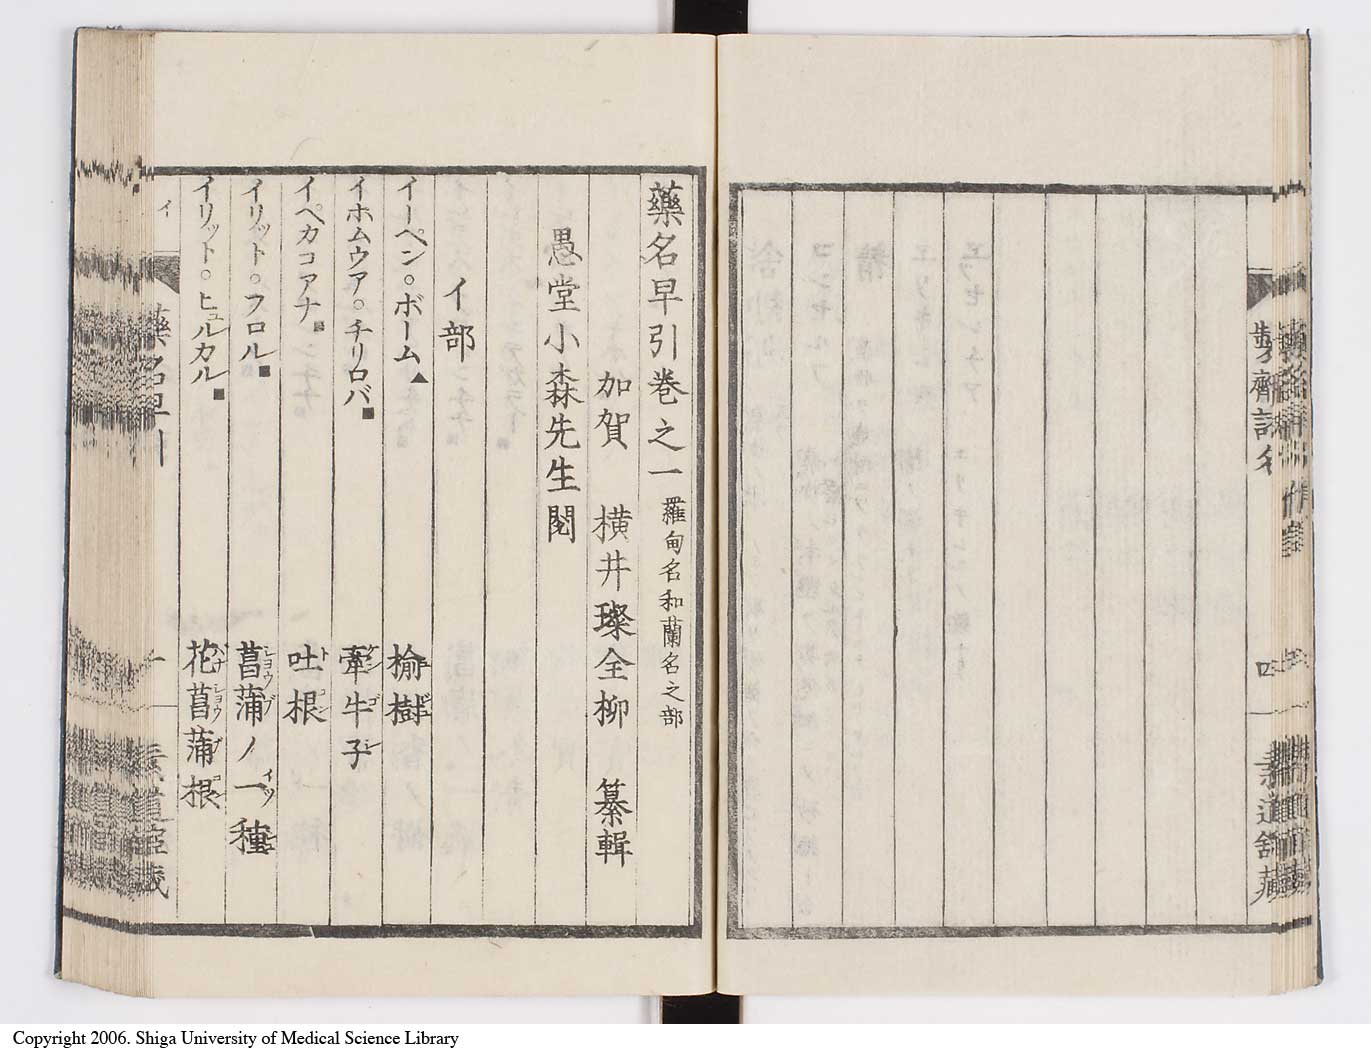 製劑記名
四
素道舘藏
藥名早引卷之一 羅甸名和蘭名之部
加賀 横井璨全柳 纂輯
愚堂小森先生閲
イ部
イーペン○ボーム▲ 榆樹
イホムウア○チリロバ■ 牽牛子
イペカコアナ■ 吐根
イリット○フロル■ 菖蒲ノ一種
イリット○ヒュルカル■ 花菖蒲根
イ
藥名早引
一
Copyright 2006. Shiga University of Medical Science Library